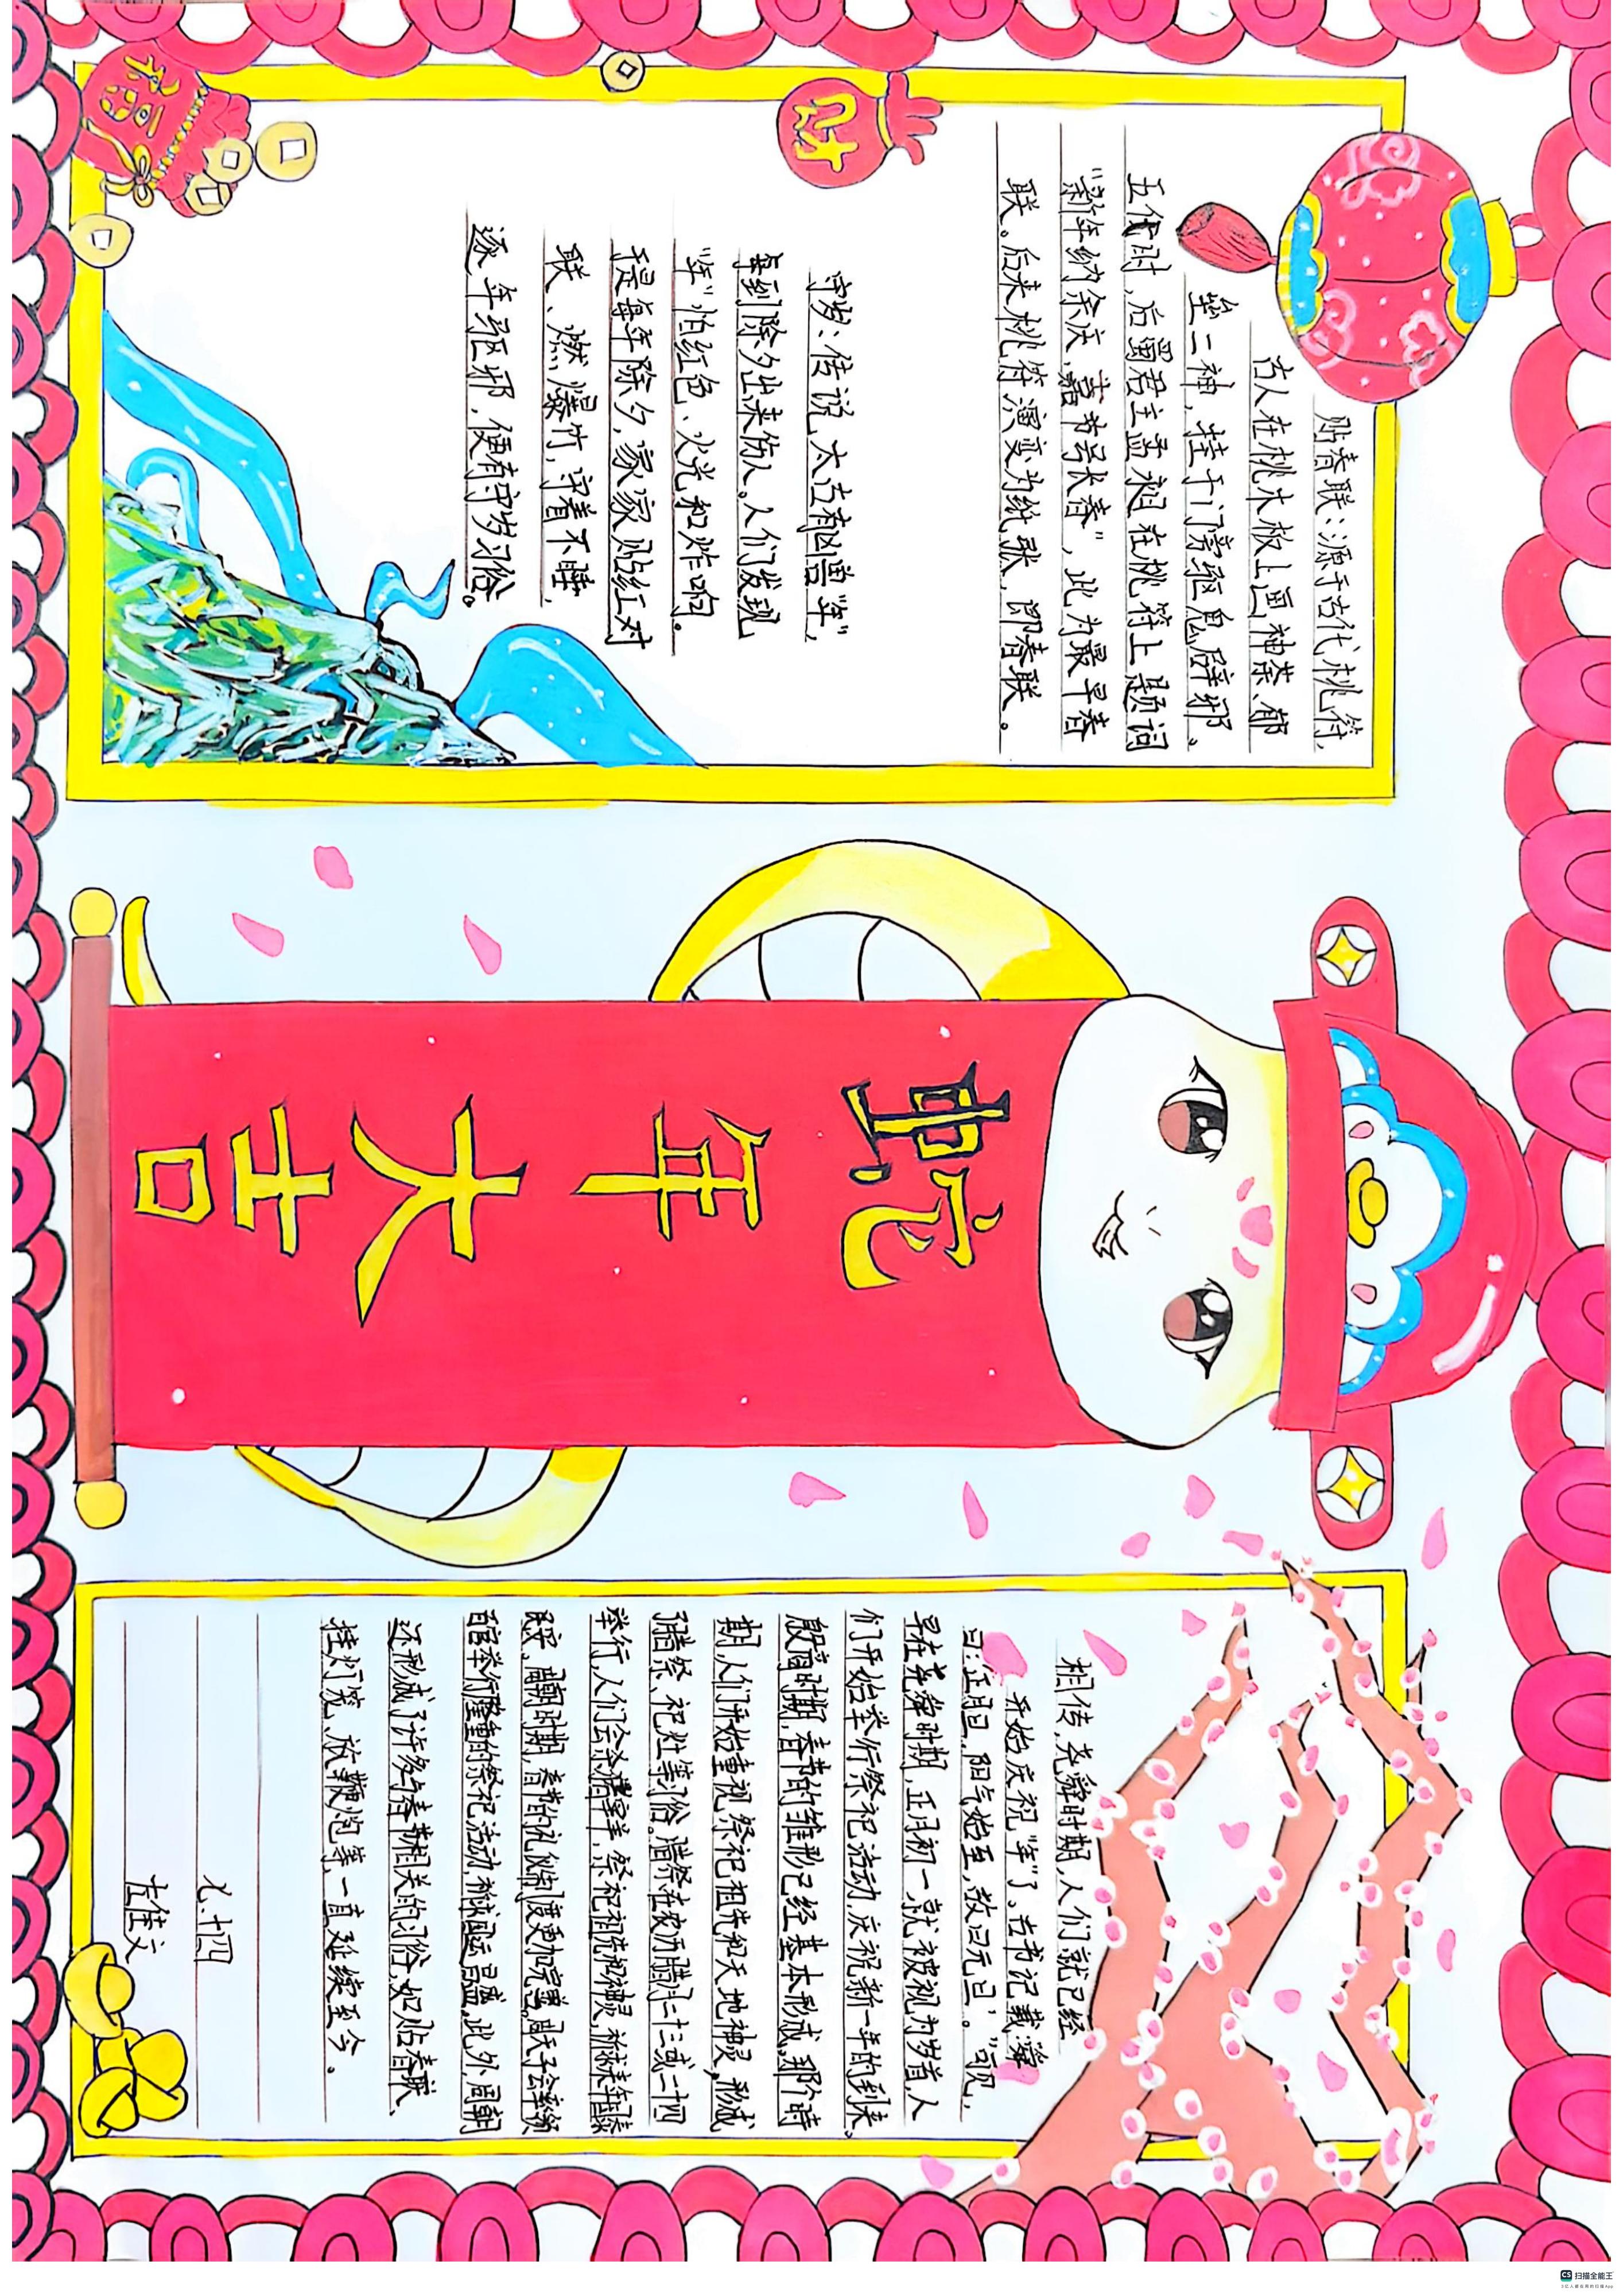 福
财
贴春联：源于古代桃符，
古人在桃木板上画神荼、郁
垒二神，挂于门旁驱鬼辟邪。
五代时，后蜀君主孟昶在桃符上题词
“新年纳余庆，嘉节号长春”，此为最早春
联。后来桃符演变为纸张，即春联。
守岁：传说，太古有凶兽“年”，
每到除夕出来伤人。人们发现
“年”怕红色、火光和炸响。
于是每年除夕，家家贴红对
联、燃爆竹，守着不睡，
逐年驱邪，便有守岁习俗。
蛇年大吉
相传，尧舜时期，人们就已经
开始庆祝“年”了，古书记载：“舜
曰：‘正月旦，阳气始至，故曰元旦’。”可见，
早在尧舜时期，正月初一就被视为岁首，人
们开始举行祭祀活动，庆祝新一年的到来。
殷商时期，春节的雏形已经基本形成，那个时
期，人们开始重视祭祀祖先和天地神灵，形成
腊祭、祀灶等习俗。腊祭在农历腊月二十三或二十四
举行，人们会杀猪宰羊，祭祀祖先和神灵，祈求来年国泰
民安，周朝时期，春节的礼仪制度更加完善。周天子会率领
百官举行隆重的祭祀活动，祈求国运昌盛。此外，周朝
还形成了许多与春节相关的习俗，如贴春联、
挂灯笼、放鞭炮等，一直延续至今。
七.十四
左佳文
CS 扫描全能王
3亿人都在用的扫描App